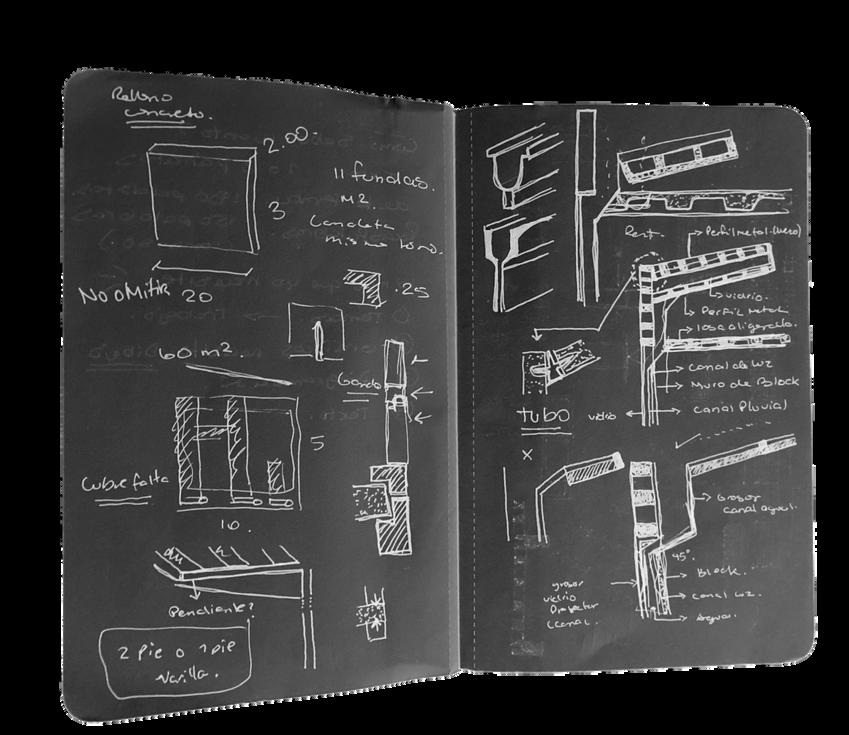 Relleno
concreto.
2.00.
11 fundas.
M2.
3
Canaleta
mismo tono.
No omitir
20
.25
60 m2.
5
Cubre falta
10.
Pendiente?
2 pie o 1 pie
Varilla.
Perfil metal (hueso)
vidrio.
Perfil metal
losa aligerada.
Canal de luz
Muro de Block
tubo
vidrio
Canal Pluvial
x
Grosor
canal agua.
45°.
Block.
Canal luz.
Agua.
grosor
vidrio
Proyectar
Canal.